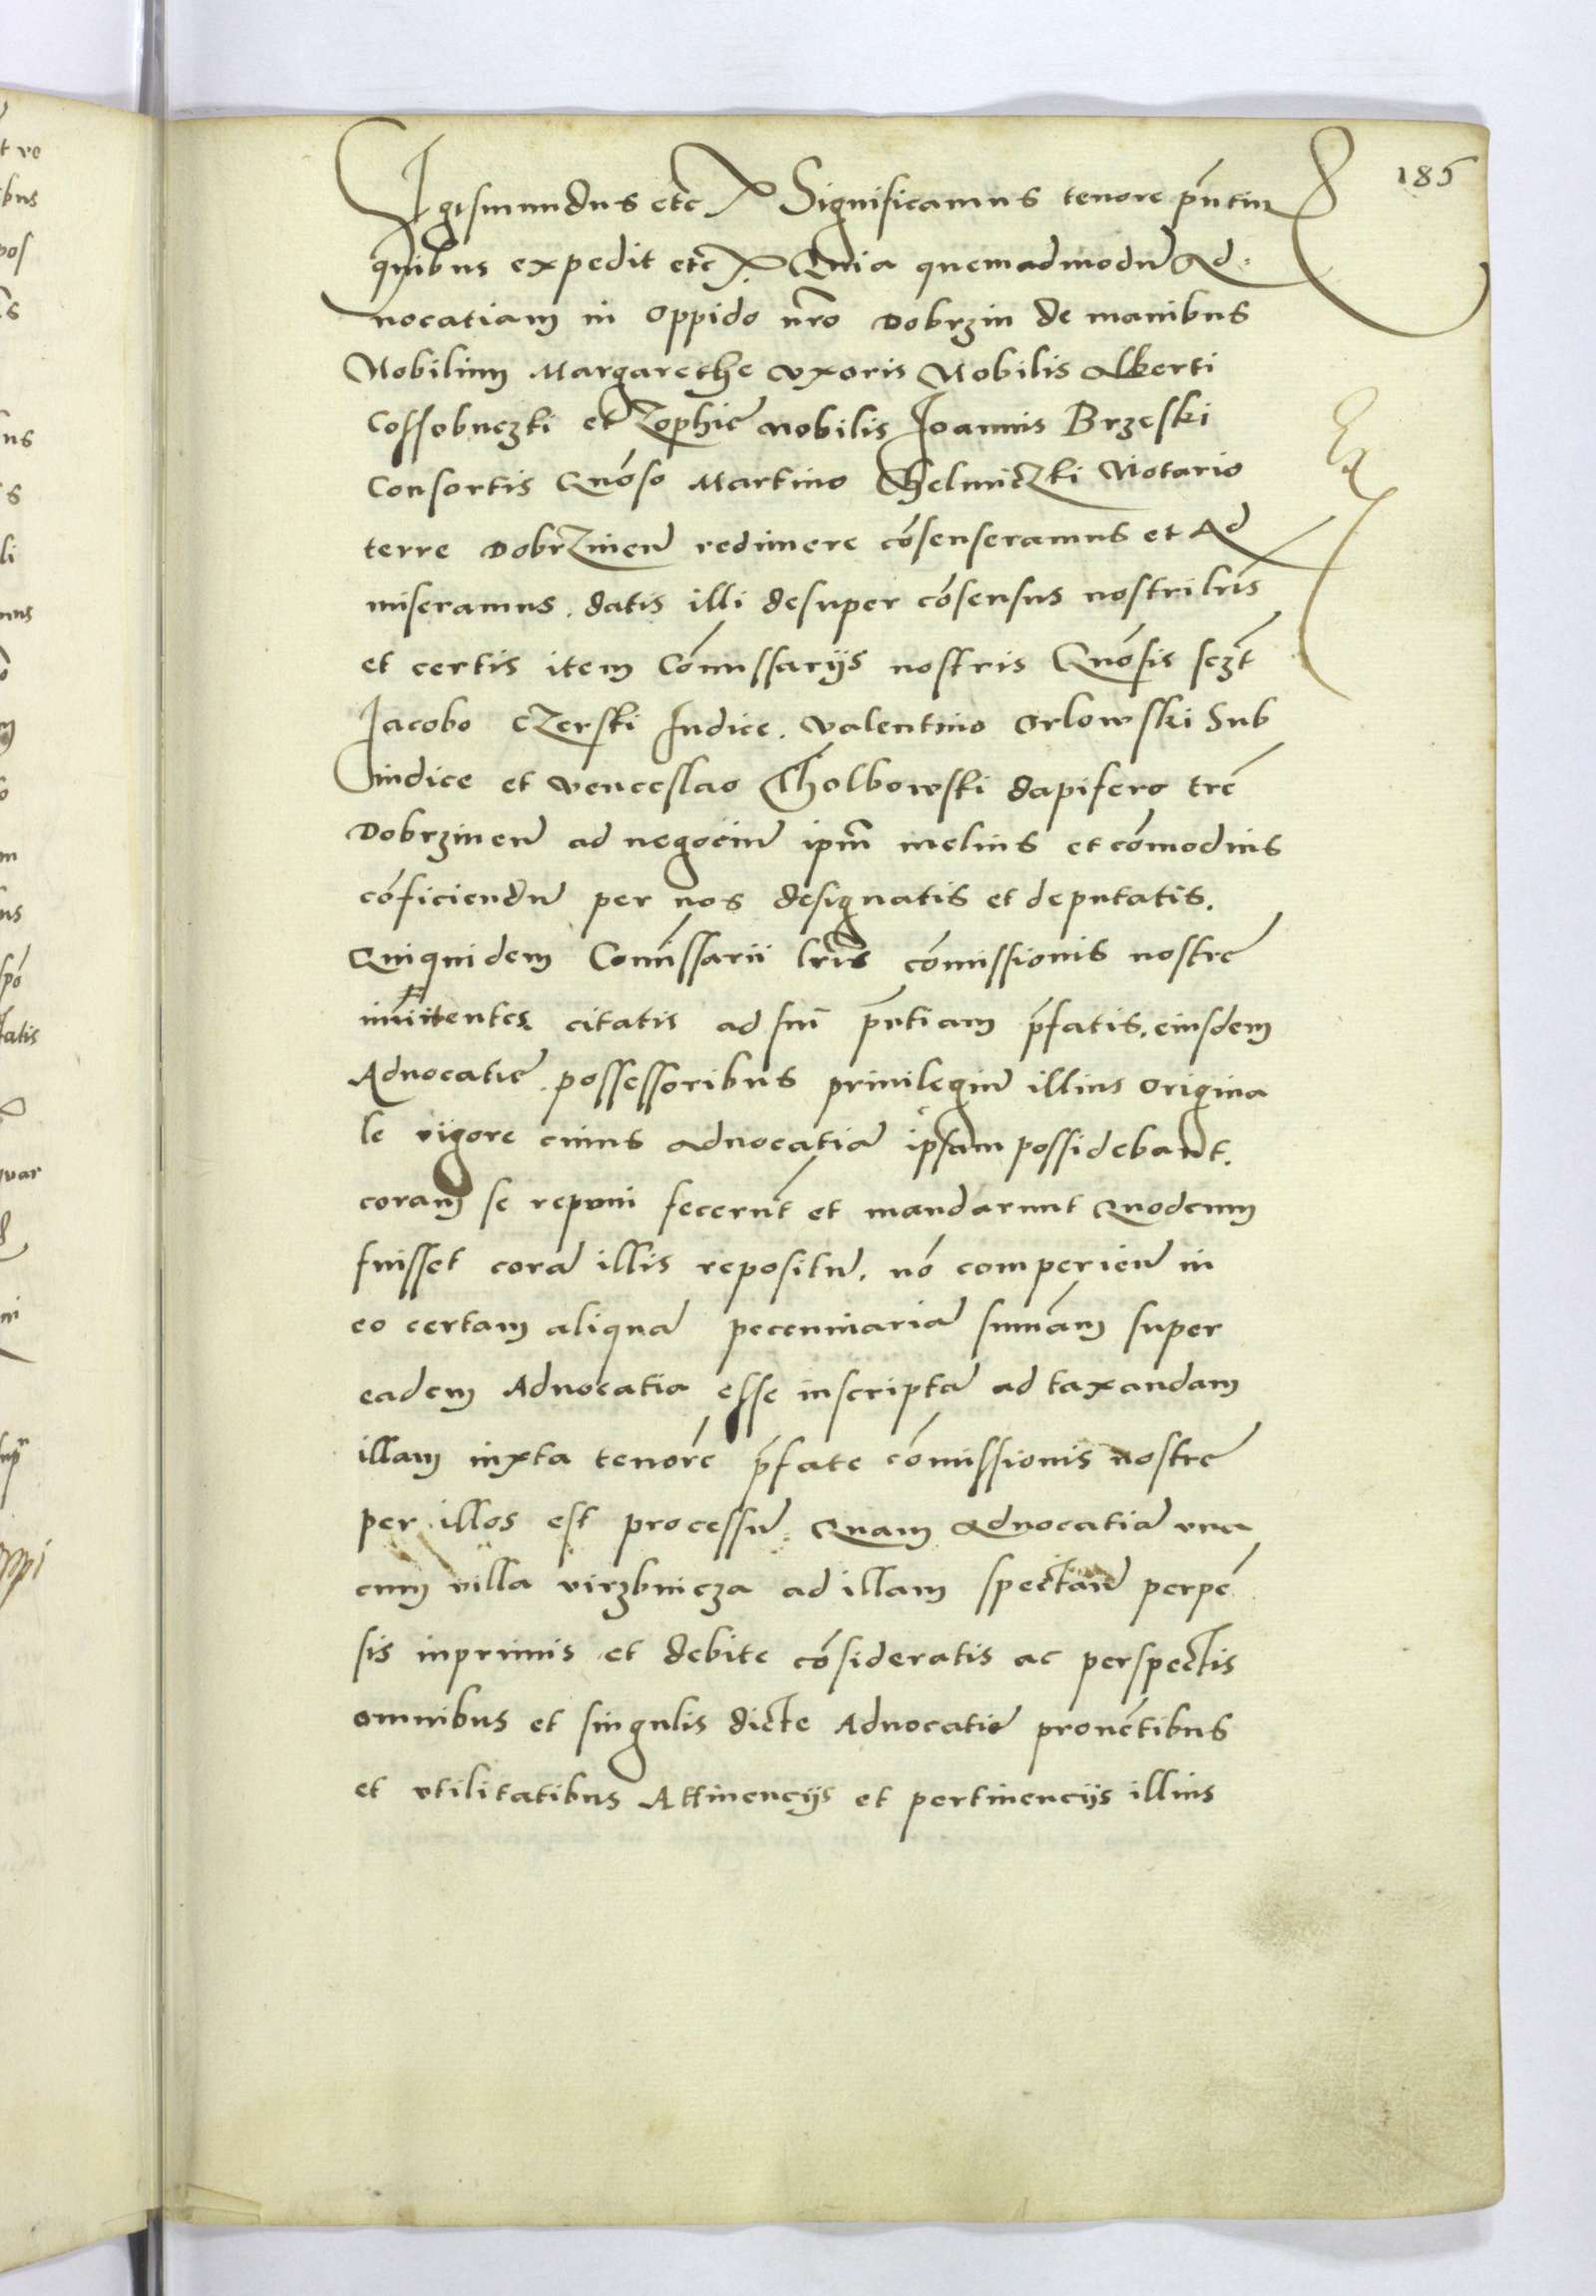 185
Sigismundus etc Significamus tenore pñtiu
quibus expedit etc. Quia quemadmodũ Ad
uocatiam in oppido nr̃o Dobrzin de manibus
Nobilium Margarethe vxoris Nobilis Alberti
Cossobuczki et Zophie nobilis Joannis Brzeski
Consortis Gnõso Martino Chelmiczki Notario
terre Dobrzineñ redimere cõsenseramus et Ad
miseramus. datis illi desuper cõsensus nostri lr̃is
et certis item Cõmissarijs nostris Gnõsis sczt
Jacobo Czerski Iudice. Valentino Orlowski Sub
iudice et Venceslao Tholbowski dapifero tr̃e
Dobrzineñ ad negociũ ipm̃ melius et cõmodius
cõficiendũ per nos designatis et deputatis.
Quiquidem Comissarii lr̃is cõmissionis nostre
innitentes citatis ad sui pñtiam p̃fatis. eiusdem
Aduocatie possessoribus priuilegiũ illius origina
le vigore cuius aduocatiã ipsam possidebant.
coram se reponi fecerũt et mandarunt Quodcum
fuisset corã illis repositũ. nõ comperieñ in
eo certam aliquã pecuniariã summam super
eadem Aduocatia esse inscriptã ad taxandam
illam iuxta tenore p̃fate cõmissionis nostre
per illos est processũ. Quam aduocatiã vna
cum villa virzbnicza ad illam spectañ perpẽ
sis inprimis et debite cõsideratis ac perspectis
omnibus et singulis dicte Aduocatie prouẽtibus
et vtilitatibus Attinencijs et pertinencijs illius